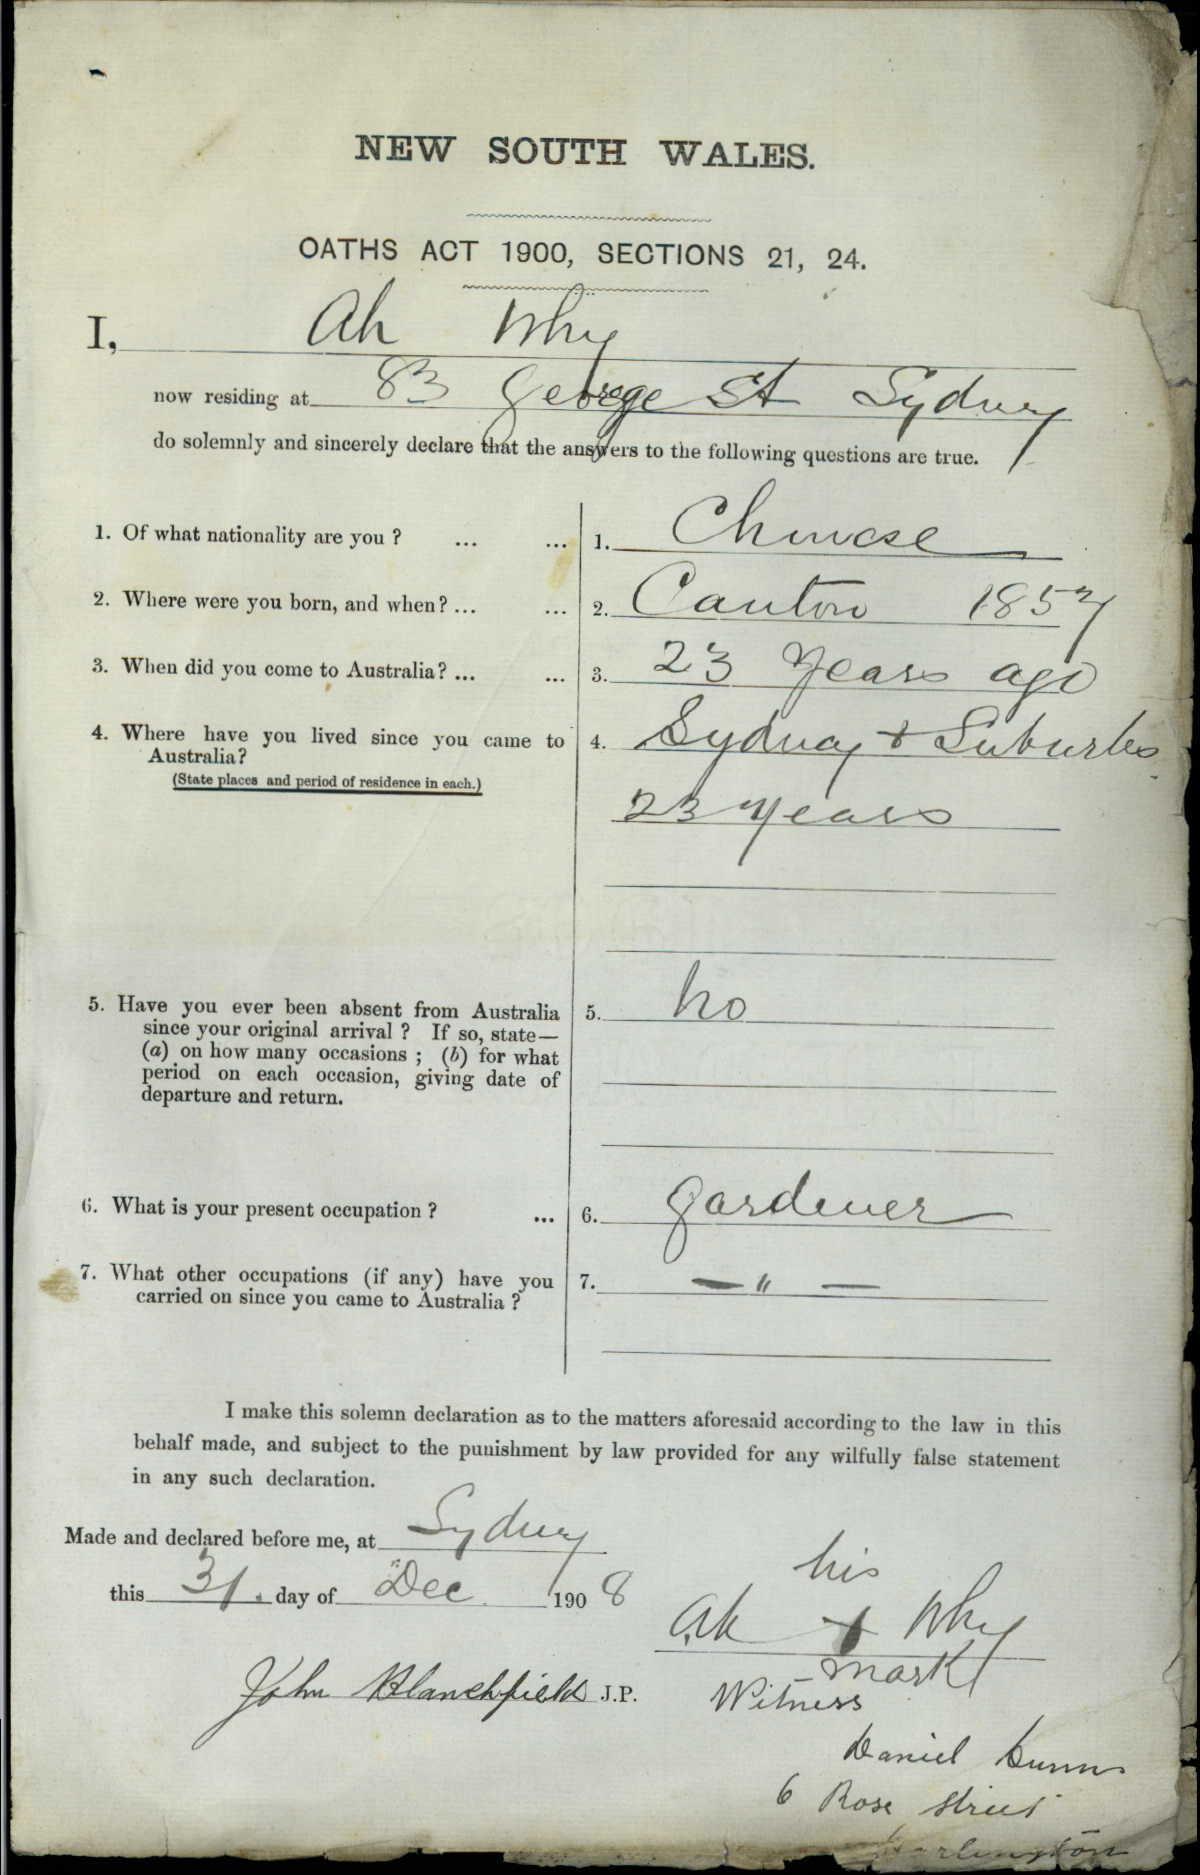 NEW SOUTH WALES.
OATHS ACT 1900, SECTIONS 21, 24.
I, Ah Why
now residing at 83 George St Sydney
do solemnly and sincerely declare that the answers to the following questions are true.
1. Of what nationality are you ? ... ... 1. Chinese
2. Where were you born, and when? ... ... 2. Canton 1857
3. When did you come to Australia? ... ... 3. 23 Years ago
4. Where have you lived since you came to 4. Sydney & Suburbs
Australia?
(State places and period of residence in each.)
23 years
5. Have you ever been absent from Australia 5. no
since your original arrival ? If so, state—
(a) on how many occasions ; (b) for what
period on each occasion, giving date of
departure and return.
6. What is your present occupation ? ... 6. Gardener
7. What other occupations (if any) have you 7. — " —
carried on since you came to Australia ?
I make this solemn declaration as to the matters aforesaid according to the law in this
behalf made, and subject to the punishment by law provided for any wilfully false statement
in any such declaration.
Made and declared before me, at Sydney
this 31. day of Dec 1908
his
Ah x Why
mark
John Blanchfield J.P.
Witness
Daniel
6 Rose Street
Darlington